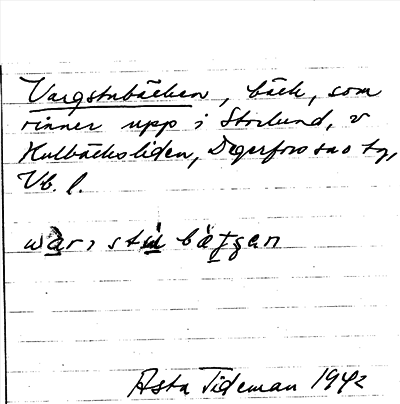 Vargstubäcken, bäck, som
rinner upp i Storlund, v
Kulbäcksliden, Degerfors sn o tg,
Vb. l.
stù bä̀tzen
Asta Tideman 1942